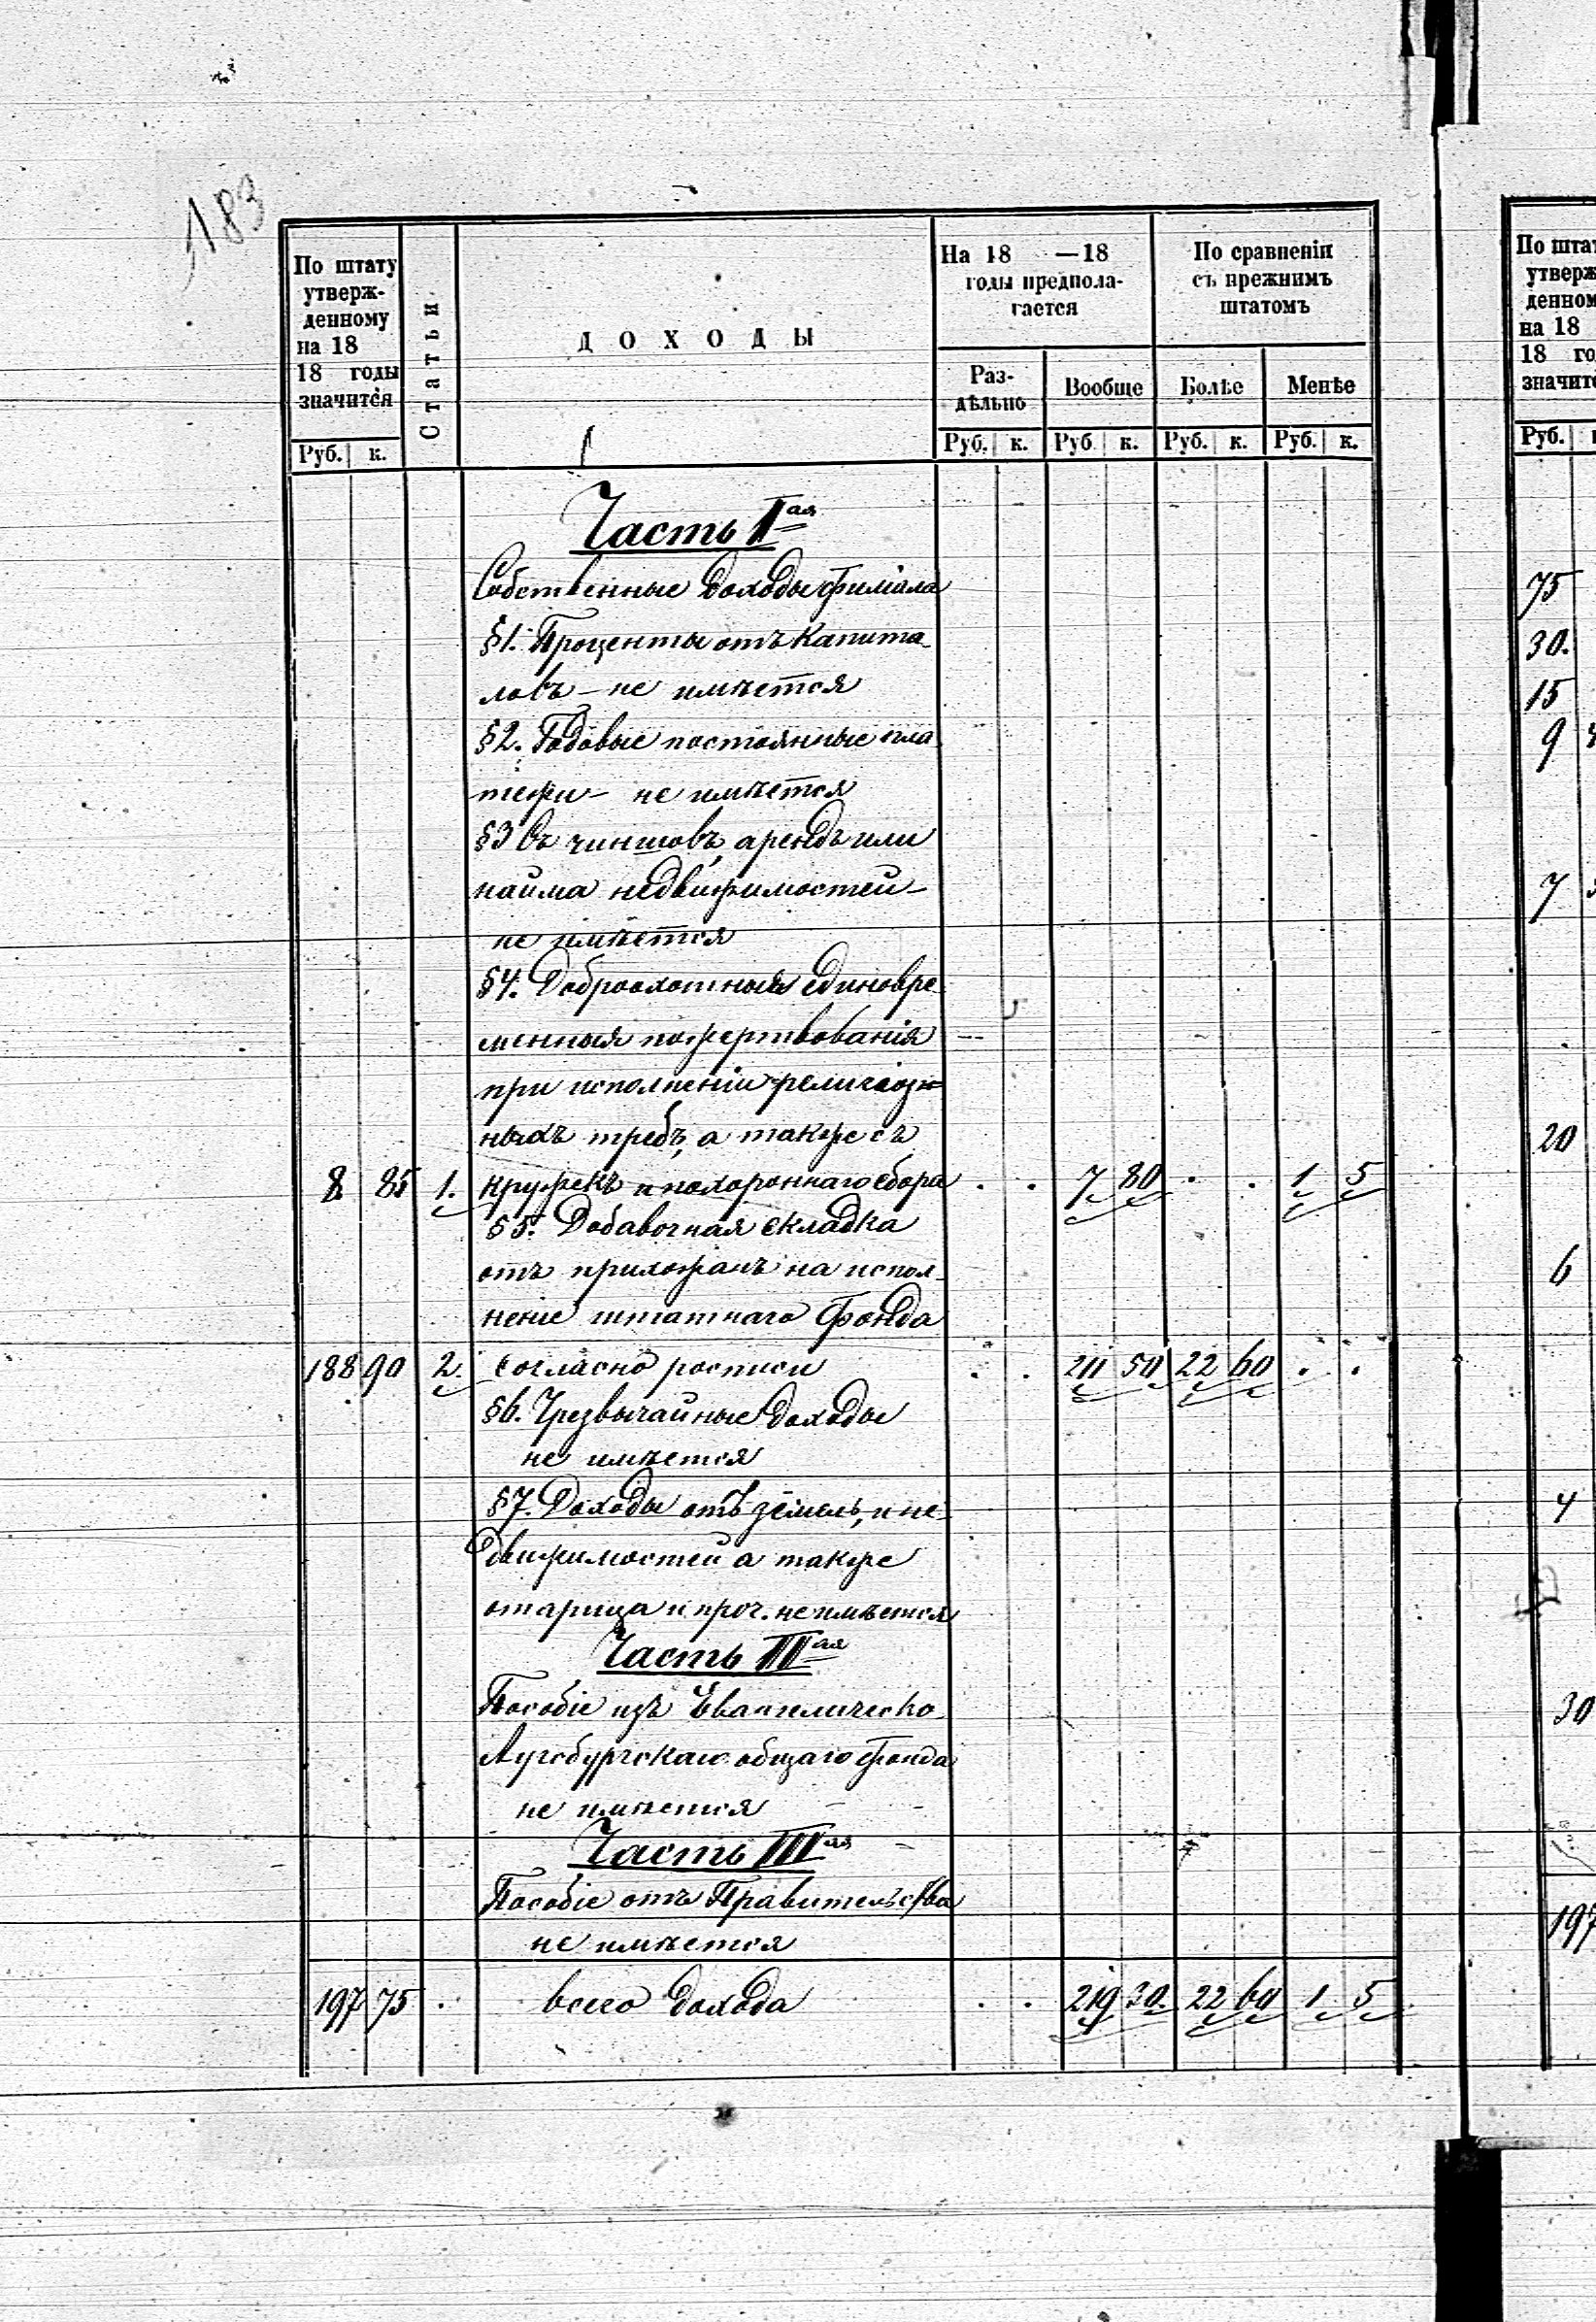 183
По штату утверж- денному на 18 18 годы значится
Статьи
ДОХОДЫ
На 18 —18 годы предпола- гается
По сравненіи съ прежнимъ штатомъ
Раз- дѣльно
Вообще
Болѣе
Менѣе
Руб. к. Руб. к. Руб. к. Руб. к. Руб. к.
Часть Iая
Собственные доходы филіала
§1. Проценты отъ капита-
ловъ – не имѣется
§2. Годовые постоянные пла-
тежи – не имѣется
§3 Съ чиншовъ, арендъ или
найма недвижимостей –
не имѣется
§4. Доброохотныя единовре-
менныя пожертвованія
при исполненіи религіоз-
ныхъ требъ, а также съ
8 85 1. кружекъ и похороннаго сбора . . 7 80 . . 1 5
§5. Добавочная складка
отъ прихожанъ на испол-
неніе штатнаго фонда
188 90 2. согласно росписи . . 211 50 22 60 . .
§6. Чрезвычайные доходы
не имѣется
§7. Доходы отъ земель, и не-
движимостей а также
отарица и проч. не имѣется
Часть IIая
Пособіе изъ Евангелическо
Аугсбургскаго общаго фонда
не имѣется
Часть IIIая
Пособіе отъ Правительства
не имѣется
197 75 . всего дохода . . 219 30. 22 60 1 5
По штат
утверж
денном
на 18
18 го
значитс
Руб.
75
30.
15
9
7
20
6
4
30
197